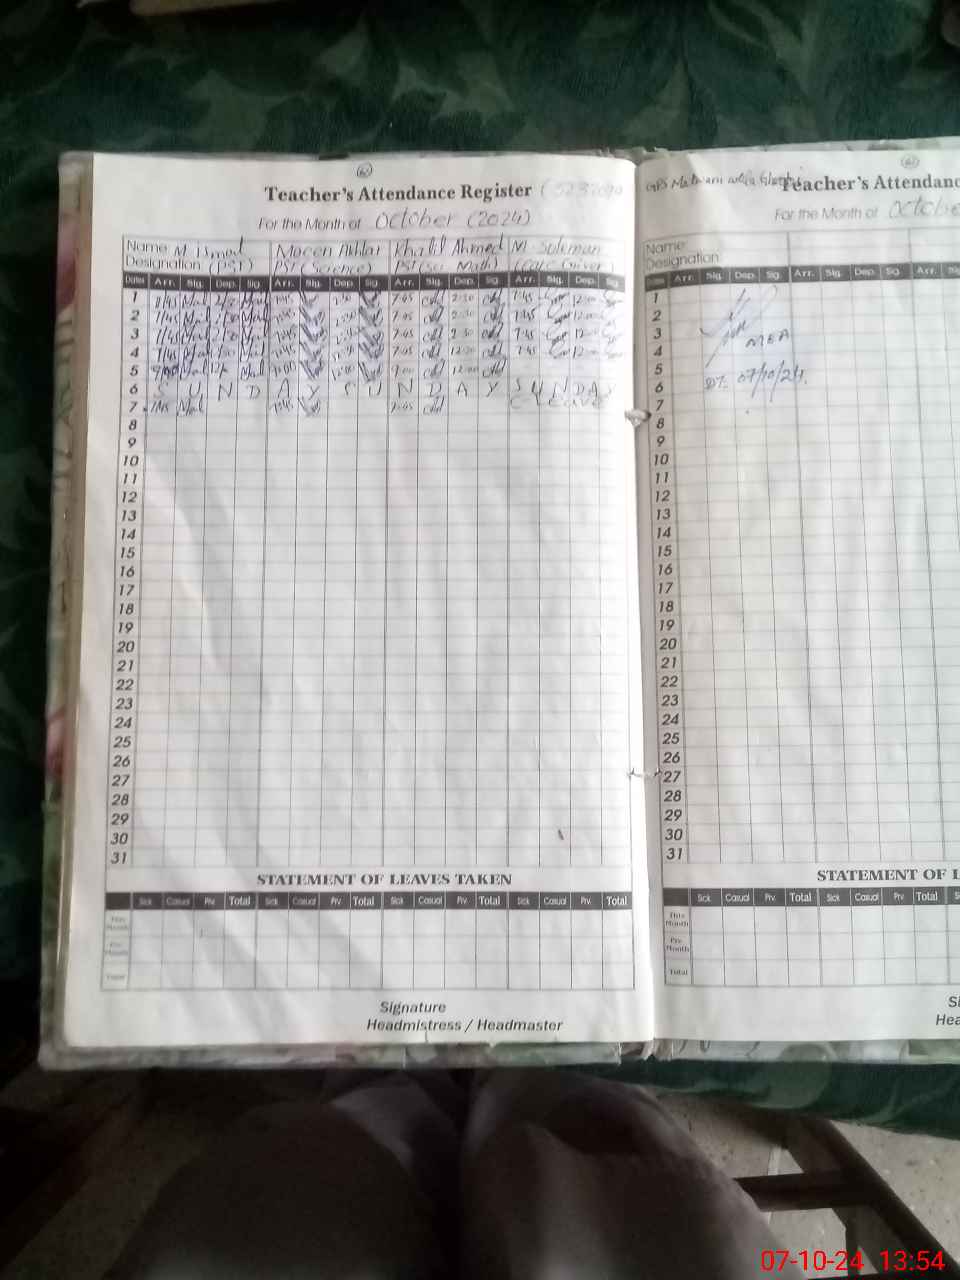 62
Teacher's Attendance Register
For the Month of October (2024)
Name M. Ismail Moeen Akhtar Khalil Ahmed M. Suleman
Designation (PST) PST (Science) PST (Sci Math) (Care Giver)
Dates Arr. Sig. Dep. Sig. Arr. Sig. Dep. Sig. Arr. Sig. Dep. Sig. Arr. Sig. Dep. Sig.
1 7/45 7:45 2:30 7:45 2:30 7:45 12:00
2 7/45 7:45 2:30 7:45 2:30 7:45 12:00
3 7/45 7:45 2:30 7:45 2:30 7:45 12:00
4 7/45 7:45 12:30 7:45 12:30 7:45 12:00
5 9:00 12:00 9:00 12:00
6 S U N D A Y S U N D A Y S U N D A Y
7 7/45 7:45 7:45 C LEAVE
8
9
10
11
12
13
14
15
16
17
18
19
20
21
22
23
24
25
26
27
28
29
30
31
STATEMENT OF LEAVES TAKEN
Sick Casual Prv. Total Sick Casual Prv. Total Sick Casual Prv. Total Sick Casual Prv. Total
This Month
Pre Month
Total
Signature
Headmistress / Headmaster
GPS
Teacher's Attendanc
For the Month of Octobe
Name
Designation
Dates Arr. Sig. Dep. Sig. Arr. Sig. Dep. Sig. Arr. Sig.
1
2
3 MEA
4
5
6 DT. 07/10/24.
7
8
9
10
11
12
13
14
15
16
17
18
19
20
21
22
23
24
25
26
27
28
29
30
31
STATEMENT OF L
Sick Casual Prv. Total Sick Casual Prv. Total S
This Month
Pre Month
Total
Si
Hea
07-10-24 13:54